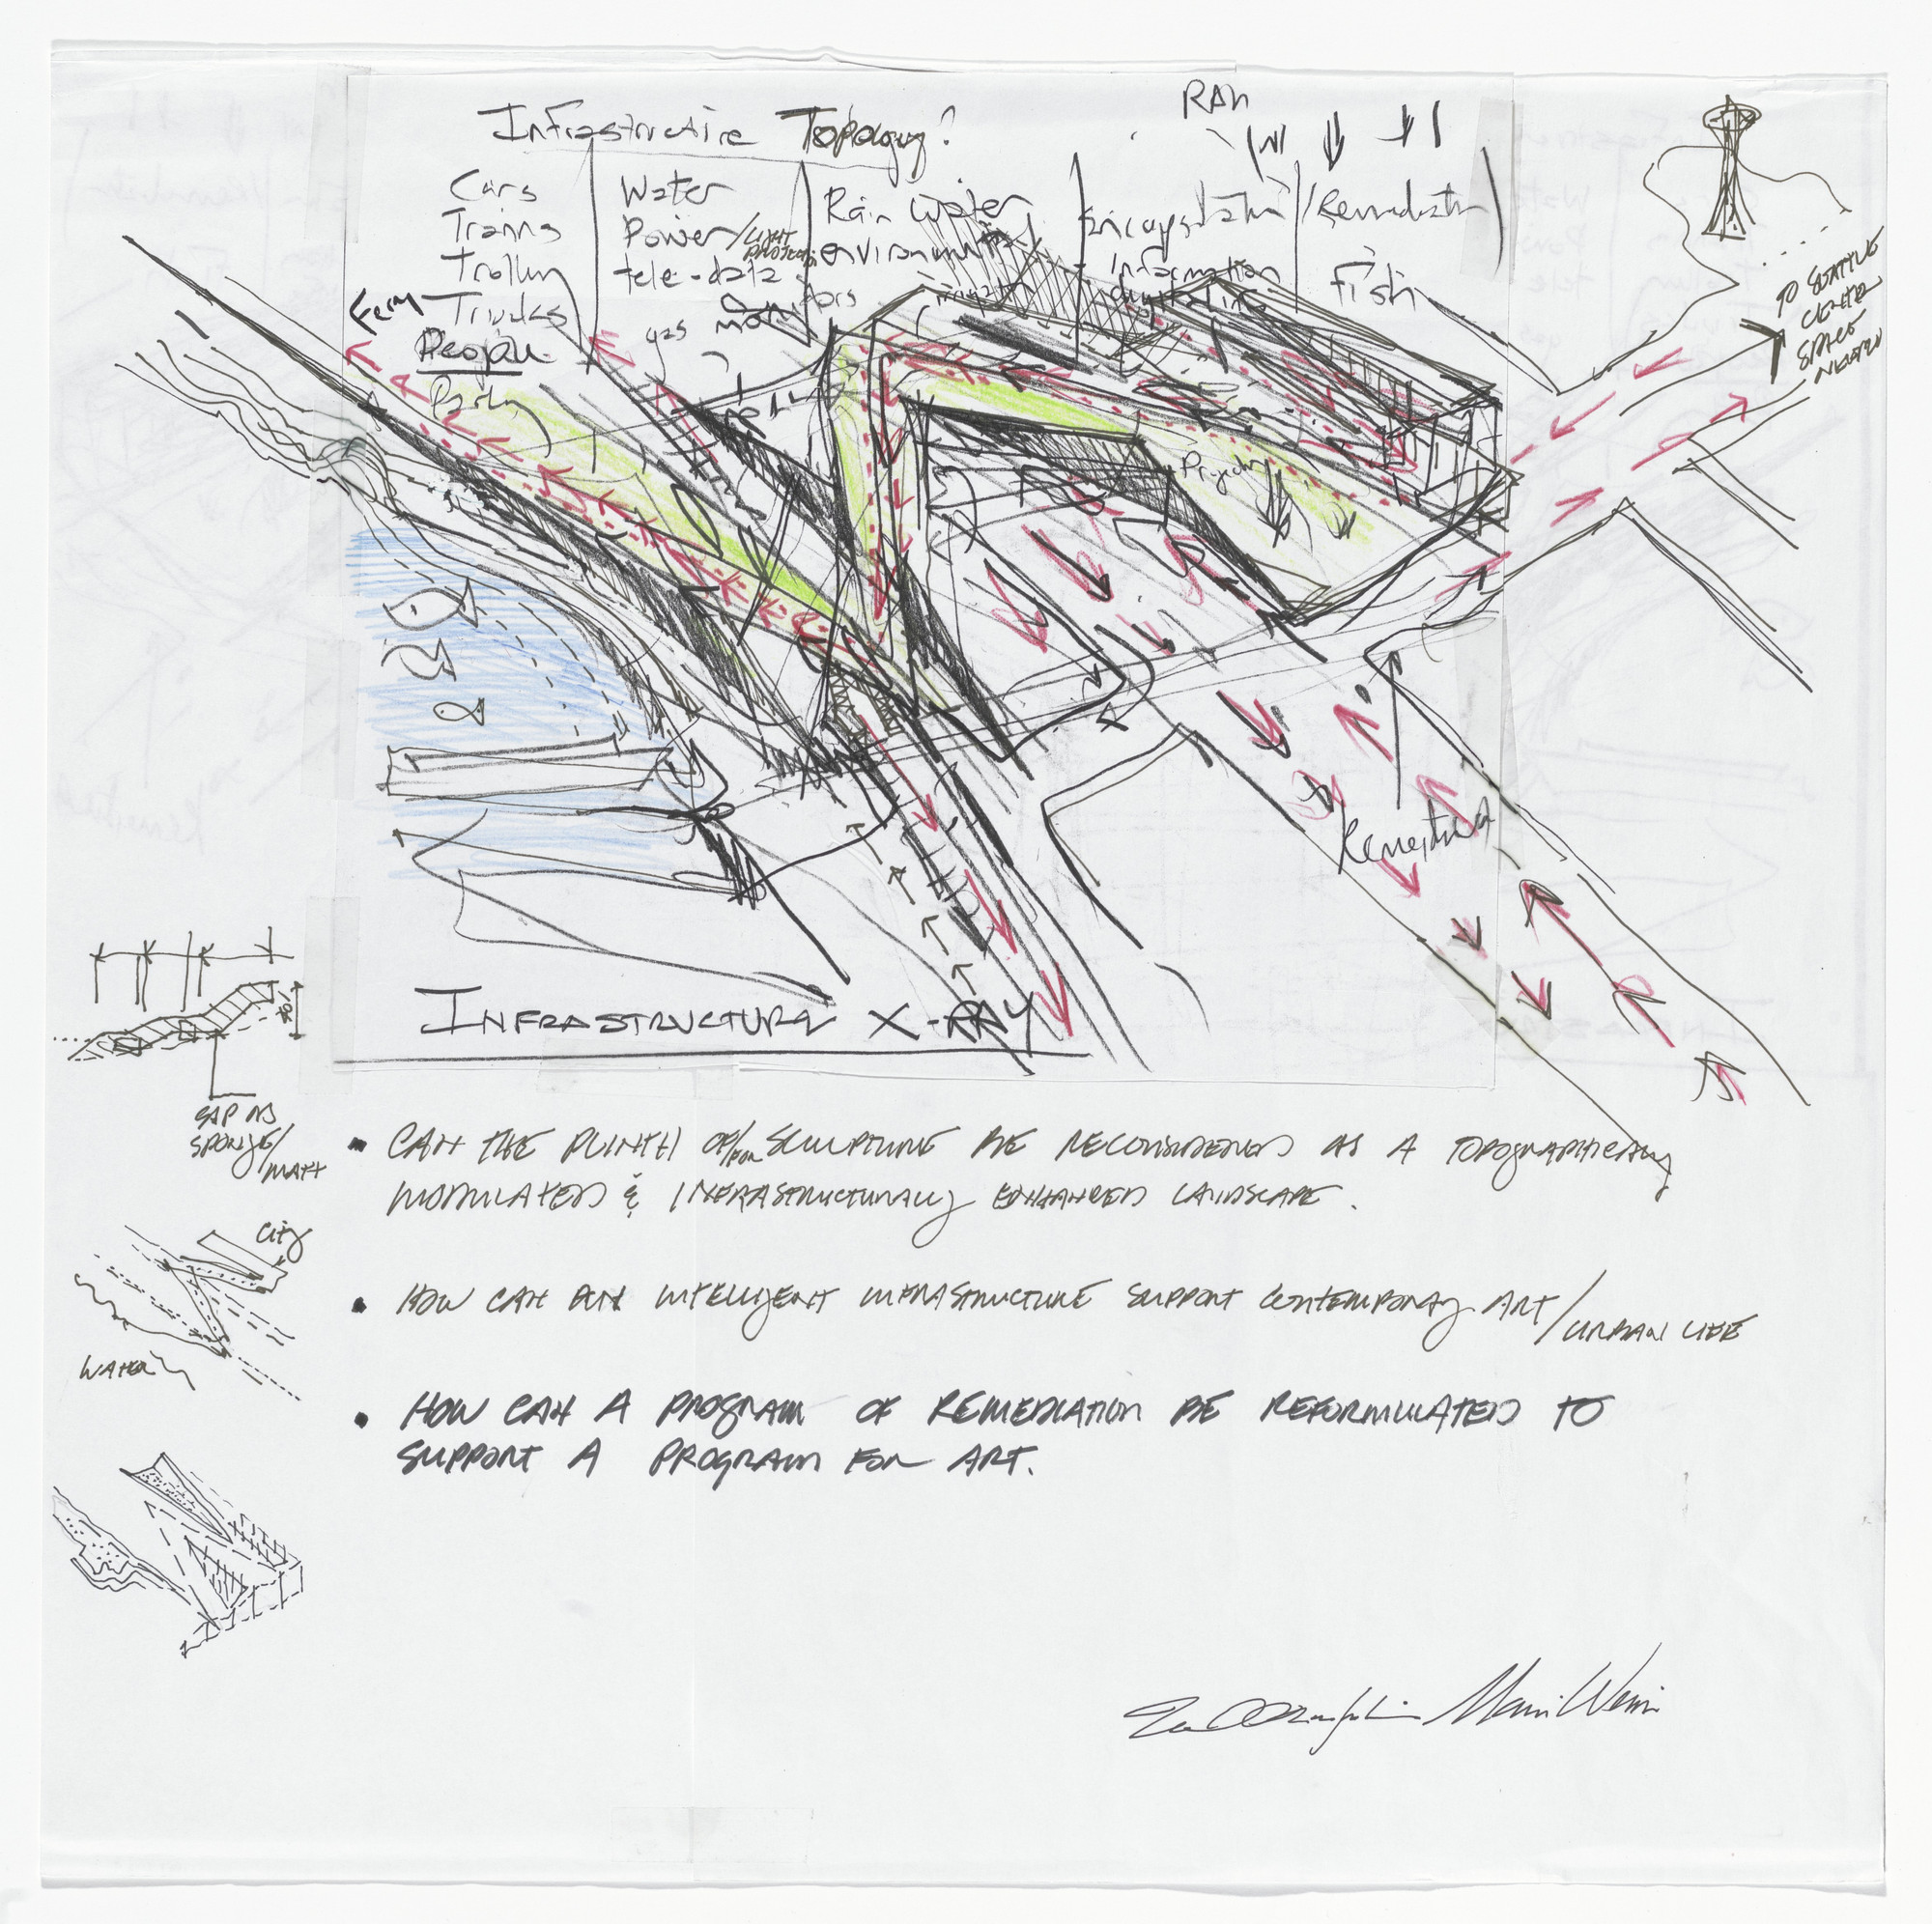 Infrastructure Topology?
RAIN
Cars
Trains
Trolley
Ferry Trucks
People
Parking
Water
Power/LIGHT
tele-data
gas
Rain Water
environmental
irrigation
Encapsulation
Information
/Remediation
Fish
TO SEATTLE
CENTER
SPACE
NEEDLE
Projection
INFRASTRUCTURE X-RAY
SAP AS
SPONGE/
MATT
• CAN THE PLINTH OF/FOR SCULPTURE BE RECONSIDERED AS A TOPOGRAPHICALLY
MODULATED & INFRASTRUCTURALLY ENHANCED LANDSCAPE.
City
WATER
• HOW CAN AN INTELLIGENT INFRASTRUCTURE SUPPORT CONTEMPORARY ART/URBAN LIFE
• HOW CAN A PROGRAM OF REMEDIATION BE REFORMULATED TO
SUPPORT A PROGRAM FOR ART.